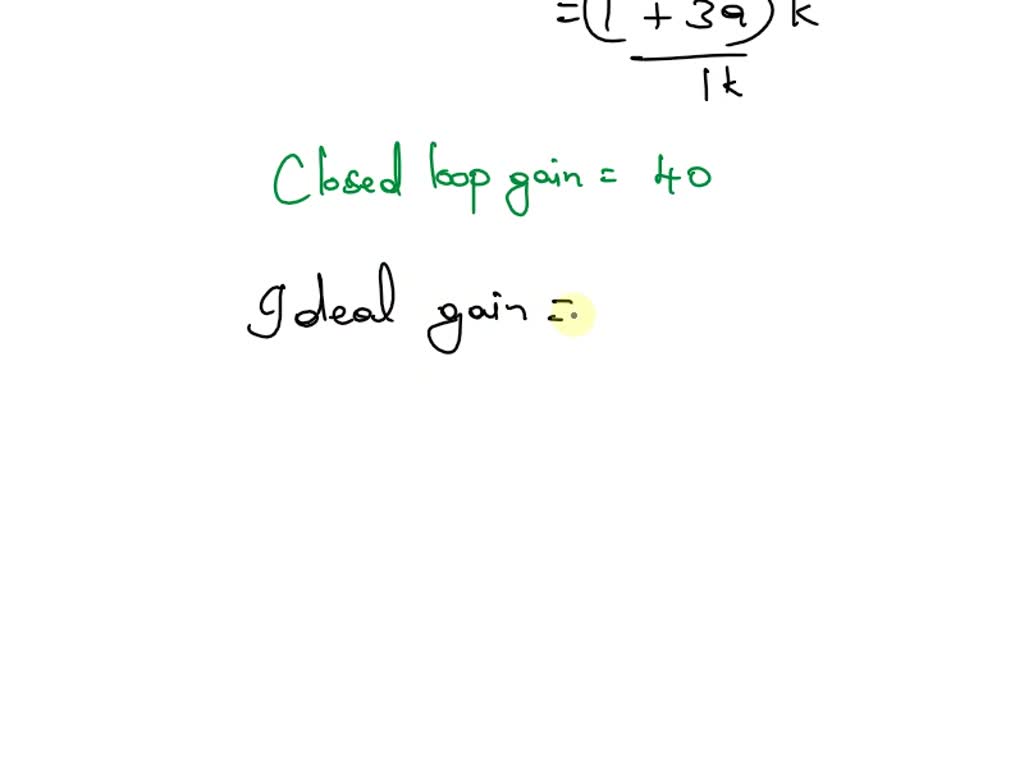 = (1 + 39) k
1k
Closed loop gain = 40
Ideal gain =